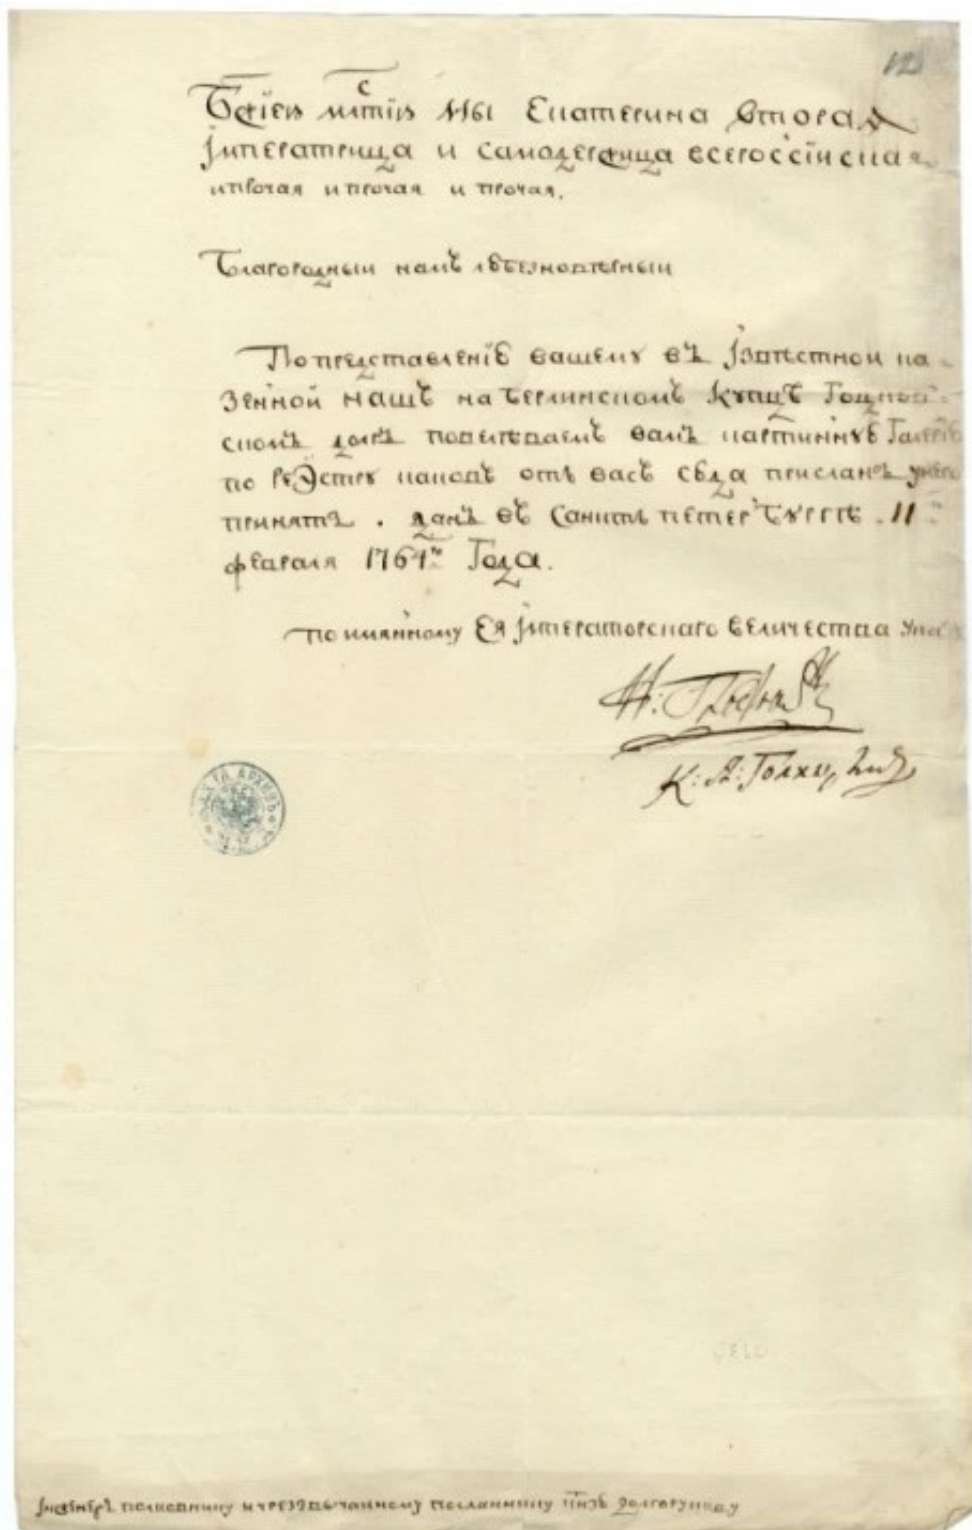 12
Бжiею мстiю мы Екатерина вторая
Iмператрица и самодержица всероссiиская
и прочая и прочая и прочая.
Благородныи намъ любезноверныи
По представленiю вашему въ Iзвѣстной ка-
зенной нашъ на берлинскомъ купцѣ Гоцков-
скомъ долгъ повелѣваемъ вамъ картинную
по реэстру каковъ отъ васъ сюда присланъ
принять. данъ въ Санктъ петербургѣ. 11
февраля 1764 Года.
по имянному Ея Iмператорскаго величества
К: А: Голицынъ
Iнженеръ полковнику и чрезвычаиному посланнику кнзю долгорукову